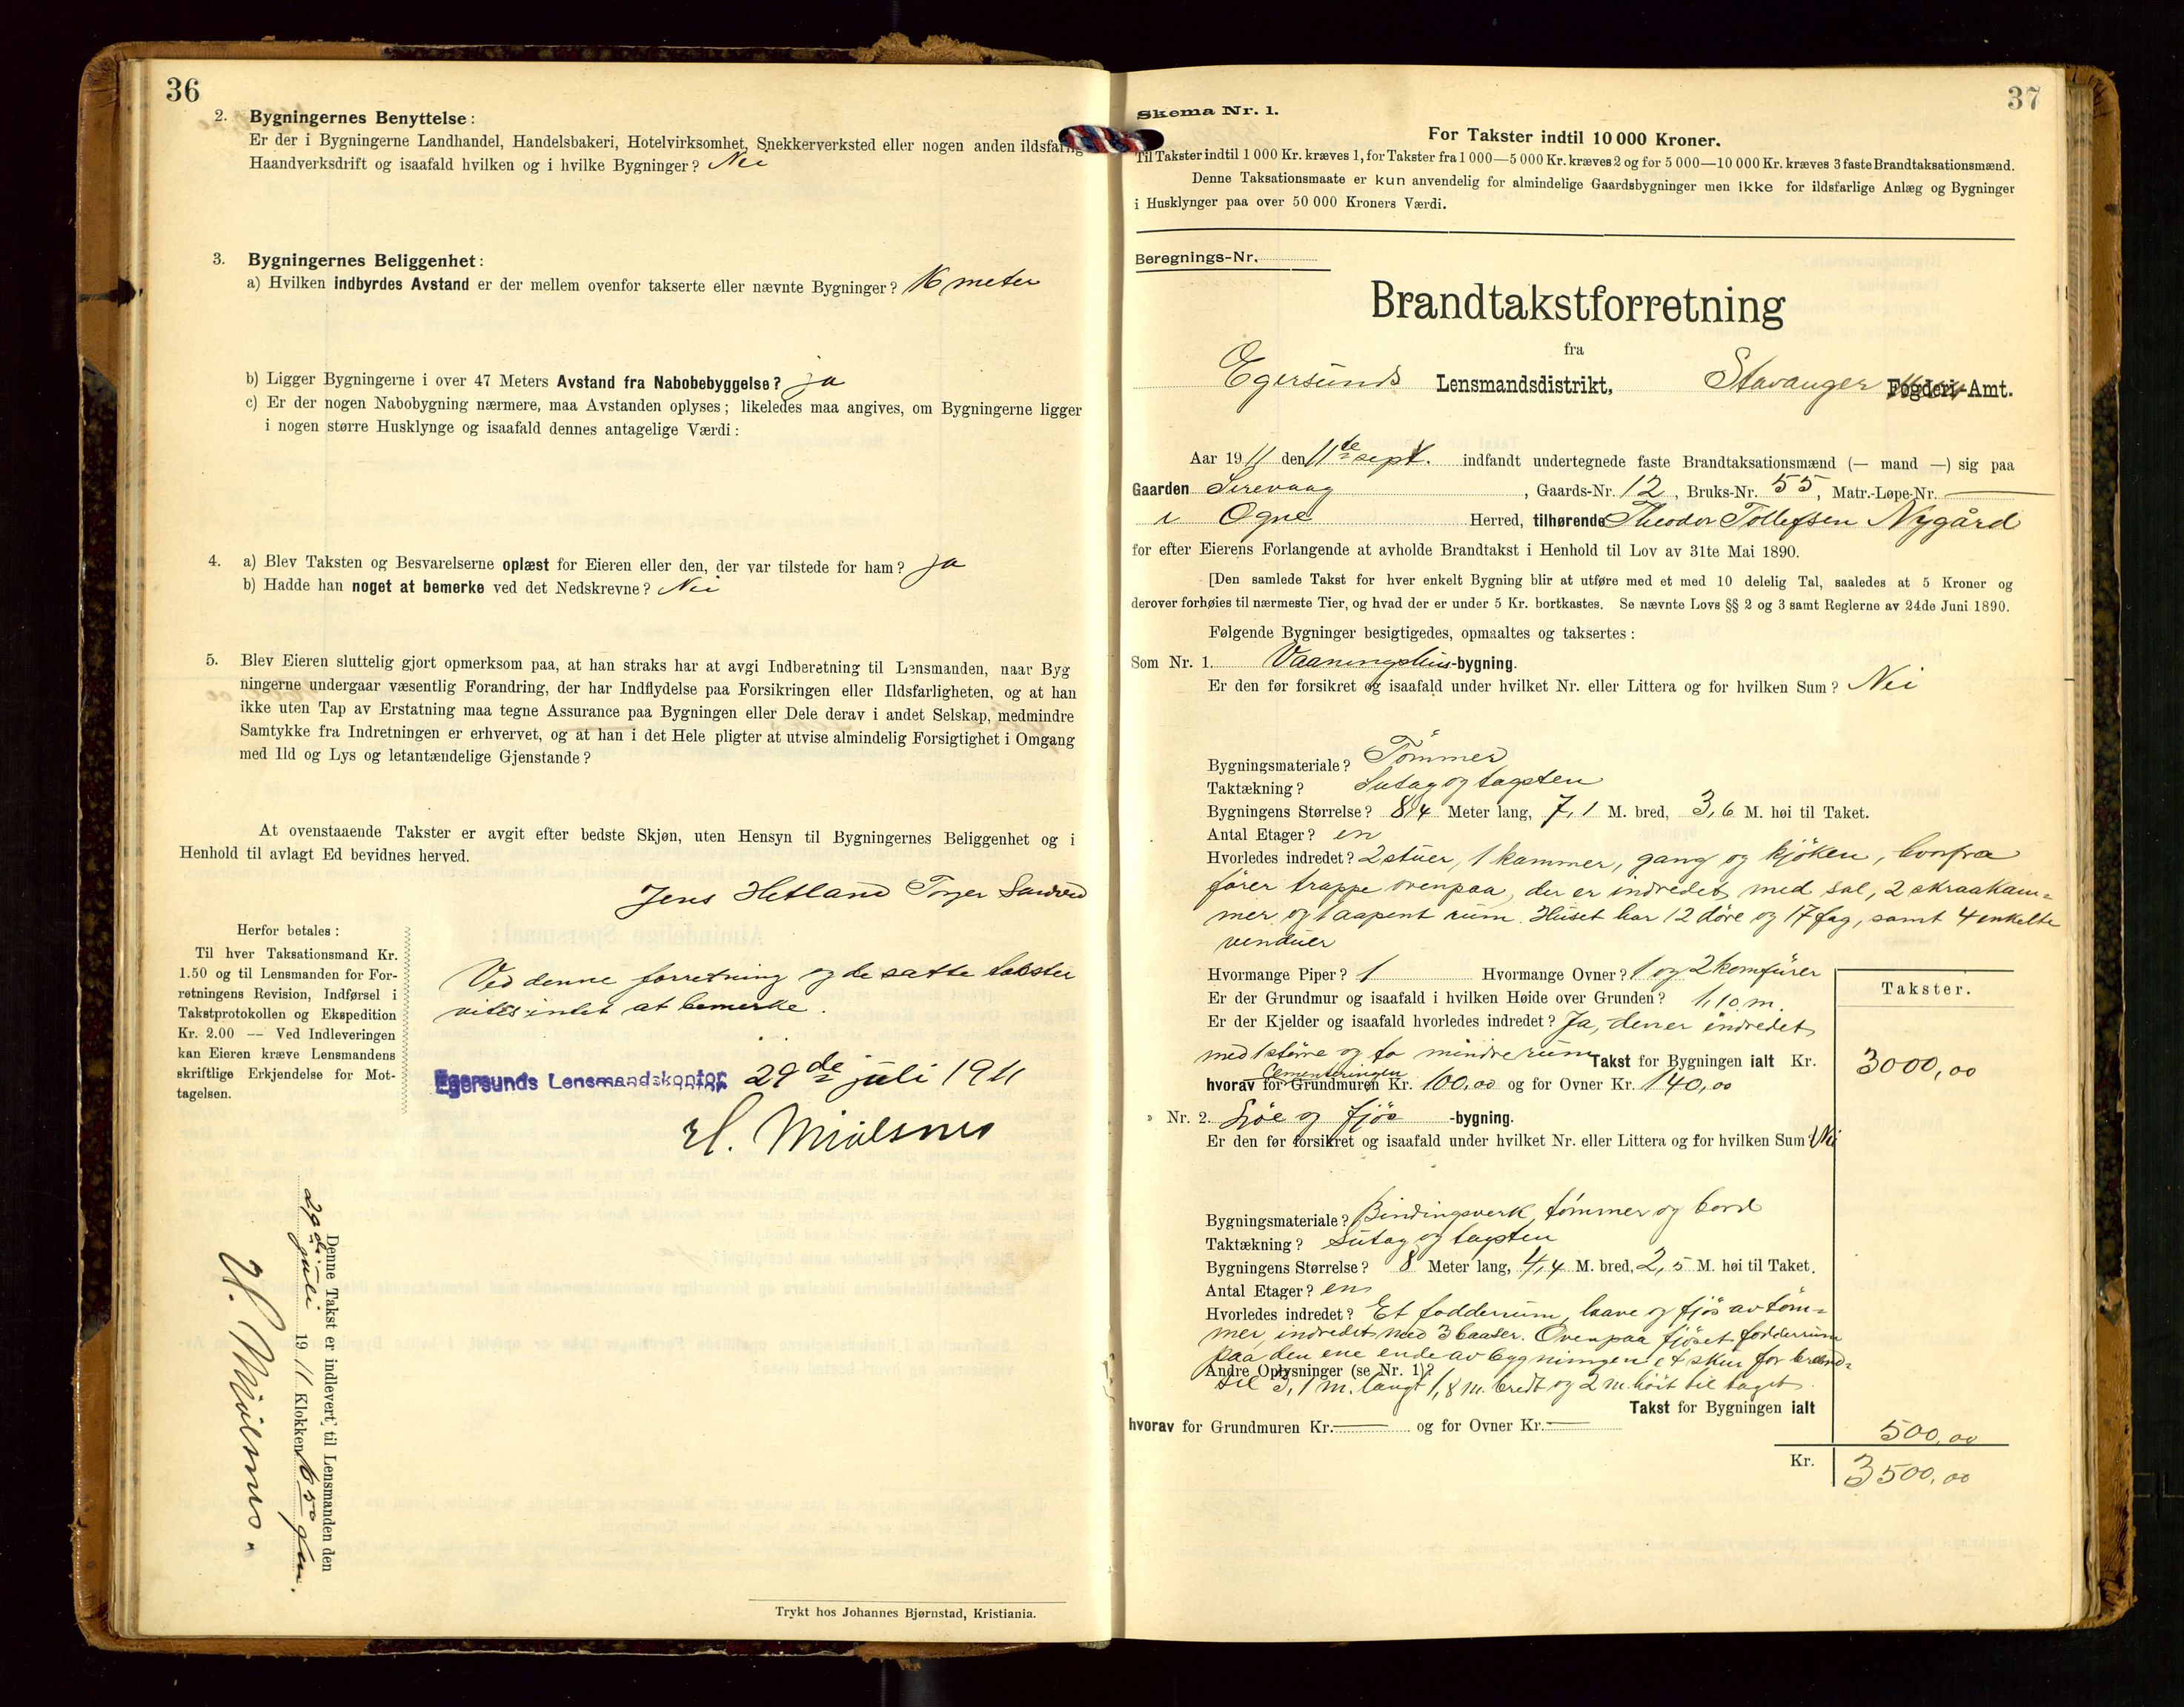 36
2. Bygningernes Benyttelse:
Er der i Bygningerne Landhandel, Handelsbakeri, Hotelvirksomhet, Snekkerverksted eller nogen anden ildsfarlig
Haandverksdrift og isaafald hvilken og i hvilke Bygninger? Nei
3. Bygningernes Beliggenhet:
a) Hvilken indbyrdes Avstand er der mellem ovenfor takserte eller nævnte Bygninger? 16 meter
b) Ligger Bygningerne i over 47 Meters Avstand fra Nabobebyggelse? ja
c) Er der nogen Nabobygning nærmere, maa Avstanden oplyses; likeledes maa angives, om Bygningerne ligger
i nogen større Husklynge og isaafald dennes antagelige Værdi:
4. a) Blev Taksten og Besvarelserne oplæst for Eieren eller den, der var tilstede for ham? ja
b) Hadde han noget at bemerke ved det Nedskrevne? Nei
5. Blev Eieren sluttelig gjort opmerksom paa, at han straks har at avgi Indberetning til Lensmanden, naar Byg
ningerne undergaar væsentlig Forandring, der har Indflydelse paa Forsikringen eller Ildsfarligheten, og at han
ikke uten Tap av Erstatning maa tegne Assurance paa Bygningen eller Dele derav i andet Selskap, medmindre
Samtykke fra Indretningen er erhvervet, og at han i det Hele pligter at utvise almindelig Forsigtighet i Omgang
med Ild og Lys og letantændelige Gjenstande?
At ovenstaaende Takster er avgit efter bedste Skjøn, uten Hensyn til Bygningernes Beliggenhet og i
Henhold til avlagt Ed bevidnes herved.
Jens Hetland Torger Sandved
Herfor betales:
Til hver Taksationsmand Kr.
1.50 og til Lensmanden for For-
retningens Revision, Indførsel i
Takstprotokollen og Ekspedition
Kr. 2.00 — Ved Indleveringen
kan Eieren kræve Lensmandens
skriftlige Erkjendelse for Mot-
tagelsen.
Ved denne forretning og de satte takster
vides intet at bemerke.
Egersunds Lensmandskontor 29de juli 1911
H. Mjølsnes
Denne Takst er indlevert til Lensmanden den
29de juli 1911 Klokken 6 50 fm.
H. Mjølsnes.
Trykt hos Johannes Bjørnstad, Kristiania.
37
Skema Nr. 1.
For Takster indtil 10 000 Kroner.
Til Takster indtil 1 000 Kr. kræves 1, for Takster fra 1 000—5 000 Kr. kræves 2 og for 5 000—10 000 Kr. kræves 3 faste Brandtaksationsmænd.
Denne Taksationsmaate er kun anvendelig for almindelige Gaardsbygninger men ikke for ildsfarlige Anlæg og Bygninger
i Husklynger paa over 50 000 Kroners Værdi.
Beregnings-Nr.
Brandtakstforretning
fra
Egersunds Lensmandsdistrikt, Stavanger Fogderi-Amt.
Aar 1911 den 11te sept. indfandt undertegnede faste Brandtaksationsmænd (— mand —) sig paa
Gaarden Sirevaag, Gaards-Nr. 12, Bruks-Nr. 55, Matr.-Løpe-Nr. —
i Ogne Herred, tilhørende Theodor Tollefsen Nygård
for efter Eierens Forlangende at avholde Brandtakst i Henhold til Lov av 31te Mai 1890.
[Den samlede Takst for hver enkelt Bygning blir at utføre med et med 10 delelig Tal, saaledes at 5 Kroner og
derover forhøies til nærmeste Tier, og hvad der er under 5 Kr. bortkastes. Se nævnte Lovs §§ 2 og 3 samt Reglerne av 24de Juni 1890.
Følgende Bygninger besigtigedes, opmaaltes og taksertes:
Som Nr. 1. Vaaningshus-bygning.
Er den før forsikret og isaafald under hvilket Nr. eller Littera og for hvilken Sum? Nei
Bygningsmateriale? Tømmer
Taktækning? Sutag og tagsten
Bygningens Størrelse? 8,4 Meter lang, 7,1 M. bred, 3,6 M. høi til Taket.
Antal Etager? en
Hvorledes indredet? 2 stuer, 1 kammer, gang og kjøken, hvorfra
fører trappe ovenpaa, der er indredet med sal, 2 skraakam-
mer og 1 aapent rum. Huset har 12 døre og 17 fag, samt 4 enkelte
venduer
Hvormange Piper? 1 Hvormange Ovner? 1 og 2 komfurer
Takster.
Er der Grundmur og isaafald i hvilken Høide over Grunden? 1,10 m.
Er der Kjelder og isaafald hvorledes indredet? Ja, den er indredet
med 1 større og to mindre rum Takst for Bygningen ialt Kr. 3000,00
Cementeringen
hvorav for Grundmuren Kr. 100,00 og for Ovner Kr. 140,00
» Nr. 2. Løe og fjøs -bygning.
Er den før forsikret og isaafald under hvilket Nr. eller Littera og for hvilken Sum? Nei
Bygningsmateriale? Bindingsverk, tømmer og bord
Taktækning? Sutag og tagsten
Bygningens Størrelse? 8 Meter lang, 4,4 M. bred, 2,5 M. høi til Taket.
Antal Etager? en
Hvorledes indredet? Et fodderrum, laave og fjøs av tøm-
mer, indredet med 3 baaser. Ovenpaa fjøset fodderrum
paa den ene ende av bygningen et skur for brænd-
Andre Oplysninger (se Nr. 1)?
sel 3,1 m. langt 1,8 m. bredt og 2 m. høit til taget.
Takst for Bygningen ialt
hvorav for Grundmuren Kr. — og for Ovner Kr. — 500,00
Kr. 3500,00